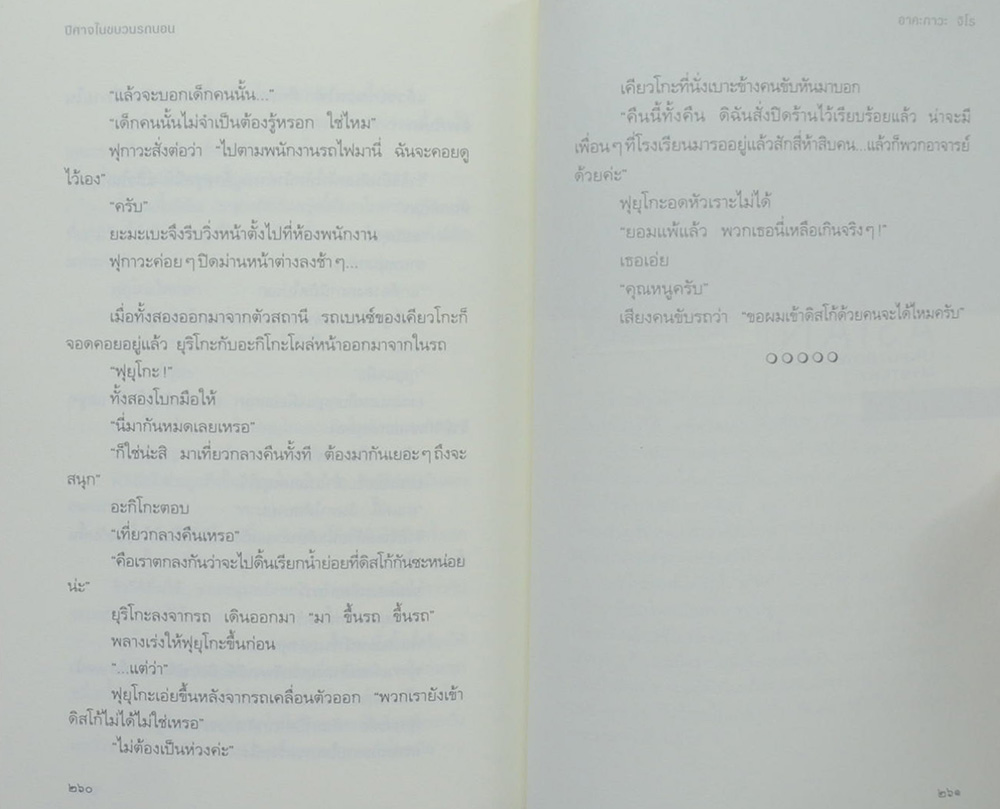 ปีศาจในขบวนรถนอน
"แล้วจะบอกเด็กคนนั้น..."
"เด็กคนนั้นไม่จำเป็นต้องรู้หรอก ใช่ไหม"
ฟุกาวะสั่งต่อว่า "ไปตามพนักงานรถไฟมานี่ ฉันจะคอยดู
ไว้เอง"
"ครับ"
ยะมะเบะจึงรีบวิ่งหน้าตั้งไปที่ห้องพนักงาน
ฟุกาวะค่อยๆ ปิดม่านหน้าต่างลงช้าๆ...
เมื่อทั้งสองออกมาจากตัวสถานี รถเบนซ์ของเคียวโกะก็
จอดคอยอยู่แล้ว ยุริโกะกับอะกิโกะโผล่หน้าออกมาจากในรถ
"ฟุยุโกะ!"
ทั้งสองโบกมือให้
"นี่มากันหมดเลยเหรอ"
"ก็ใช่น่ะสิ มาเที่ยวกลางคืนทั้งที ต้องมากันเยอะๆ ถึงจะ
สนุก"
อะกิโกะตอบ
"เที่ยวกลางคืนเหรอ"
"คือเราตกลงกันว่าจะไปดิ้นเรียกน้ำย่อยที่ดิสโก้กันซะหน่อย
น่ะ"
ยุริโกะลงจากรถ เดินออกมา "มา ขึ้นรถ ขึ้นรถ"
พลางเร่งให้ฟุยุโกะขึ้นก่อน
"...แต่ว่า"
ฟุยุโกะเอ่ยขึ้นหลังจากรถเคลื่อนตัวออก "พวกเรายังเข้า
ดิสโก้ไม่ได้ไม่ใช่เหรอ"
"ไม่ต้องเป็นห่วงค่ะ"
๒๖๐
อาคะกาวะ จิโร
เคียวโกะที่นั่งเบาะข้างคนขับหันมาบอก
"คืนนี้ทั้งคืน ดิฉันสั่งปิดร้านไว้เรียบร้อยแล้ว น่าจะมี
เพื่อนๆ ที่โรงเรียนมารออยู่แล้วสักสี่ห้าสิบคน...แล้วก็พวกอาจารย์
ด้วยค่ะ"
ฟุยุโกะอดหัวเราะไม่ได้
"ยอมแพ้แล้ว พวกเธอนี่เหลือเกินจริงๆ!"
เธอเอ่ย
"คุณหนูครับ"
เสียงคนขับรถว่า "ขอผมเข้าดิสโก้ด้วยคนจะได้ไหมครับ"
๒๖๑